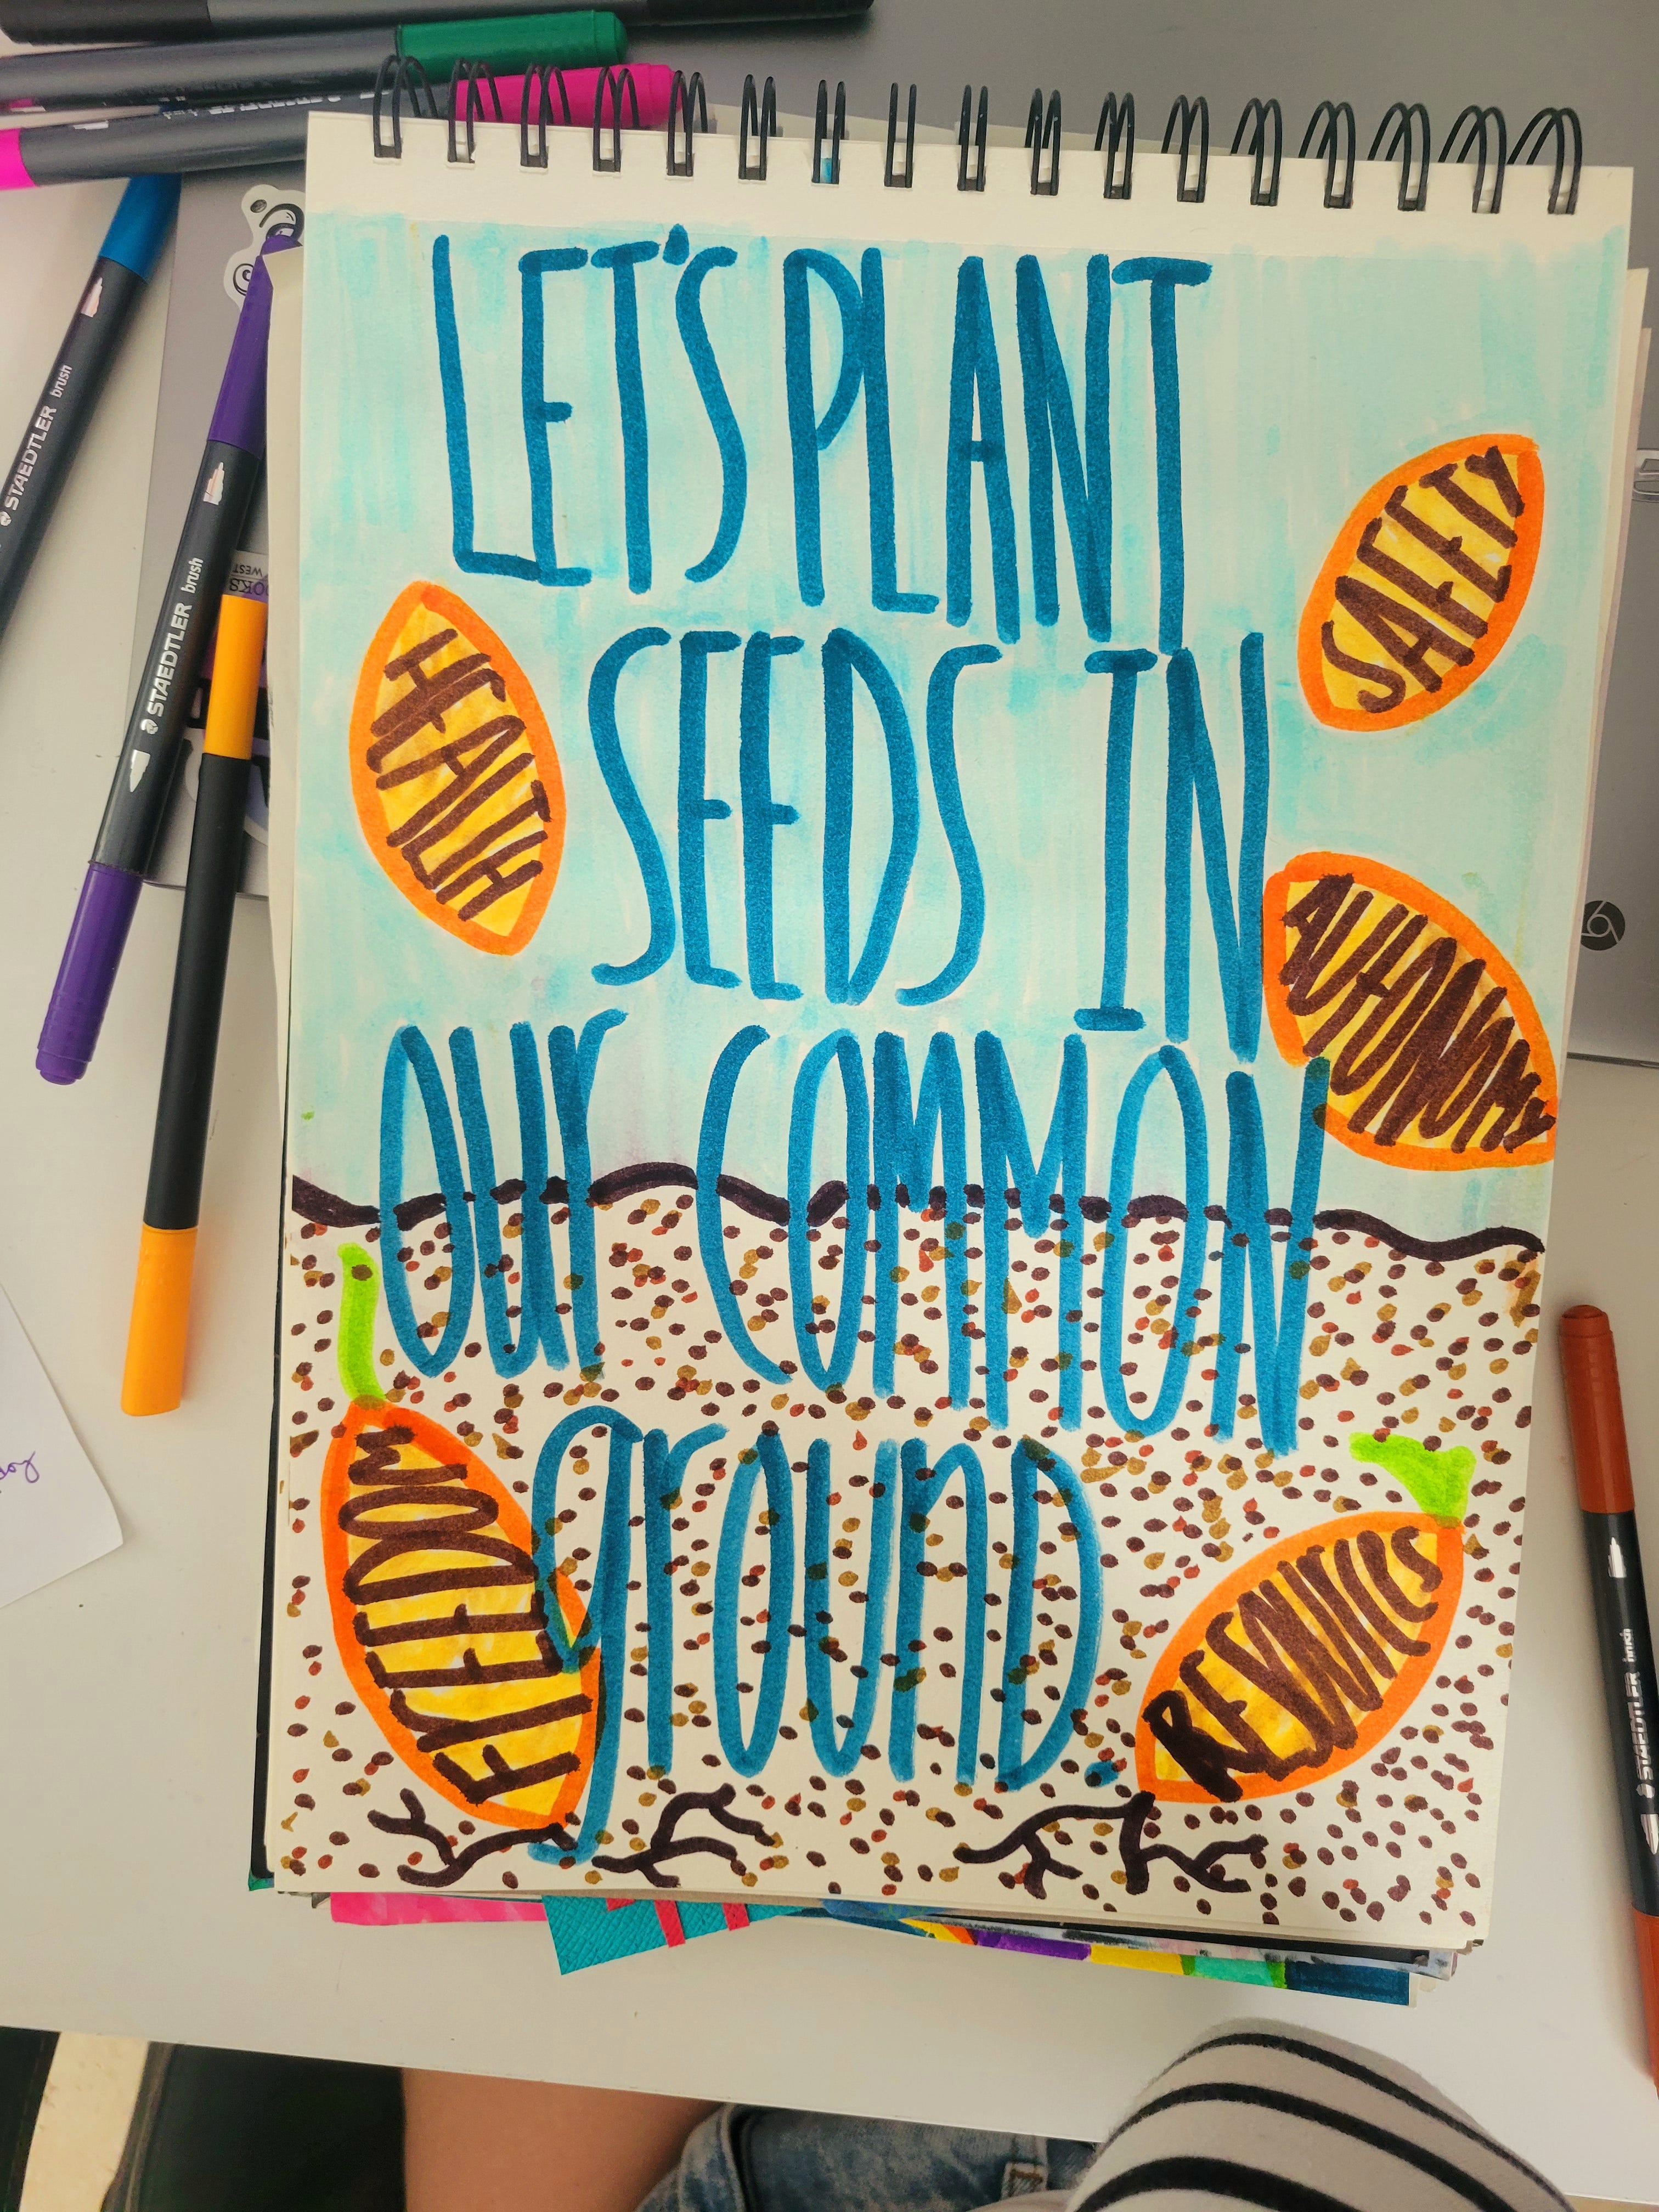 LET'S PLANT
SEEDS IN
OUR COMMON
GROUND.
SAFETY
HEALTH
AUTONOMY
FREEDOM
RESOURCES
STAEDTLER brush
STAEDTLER brush
STAEDTLER brush
WEST